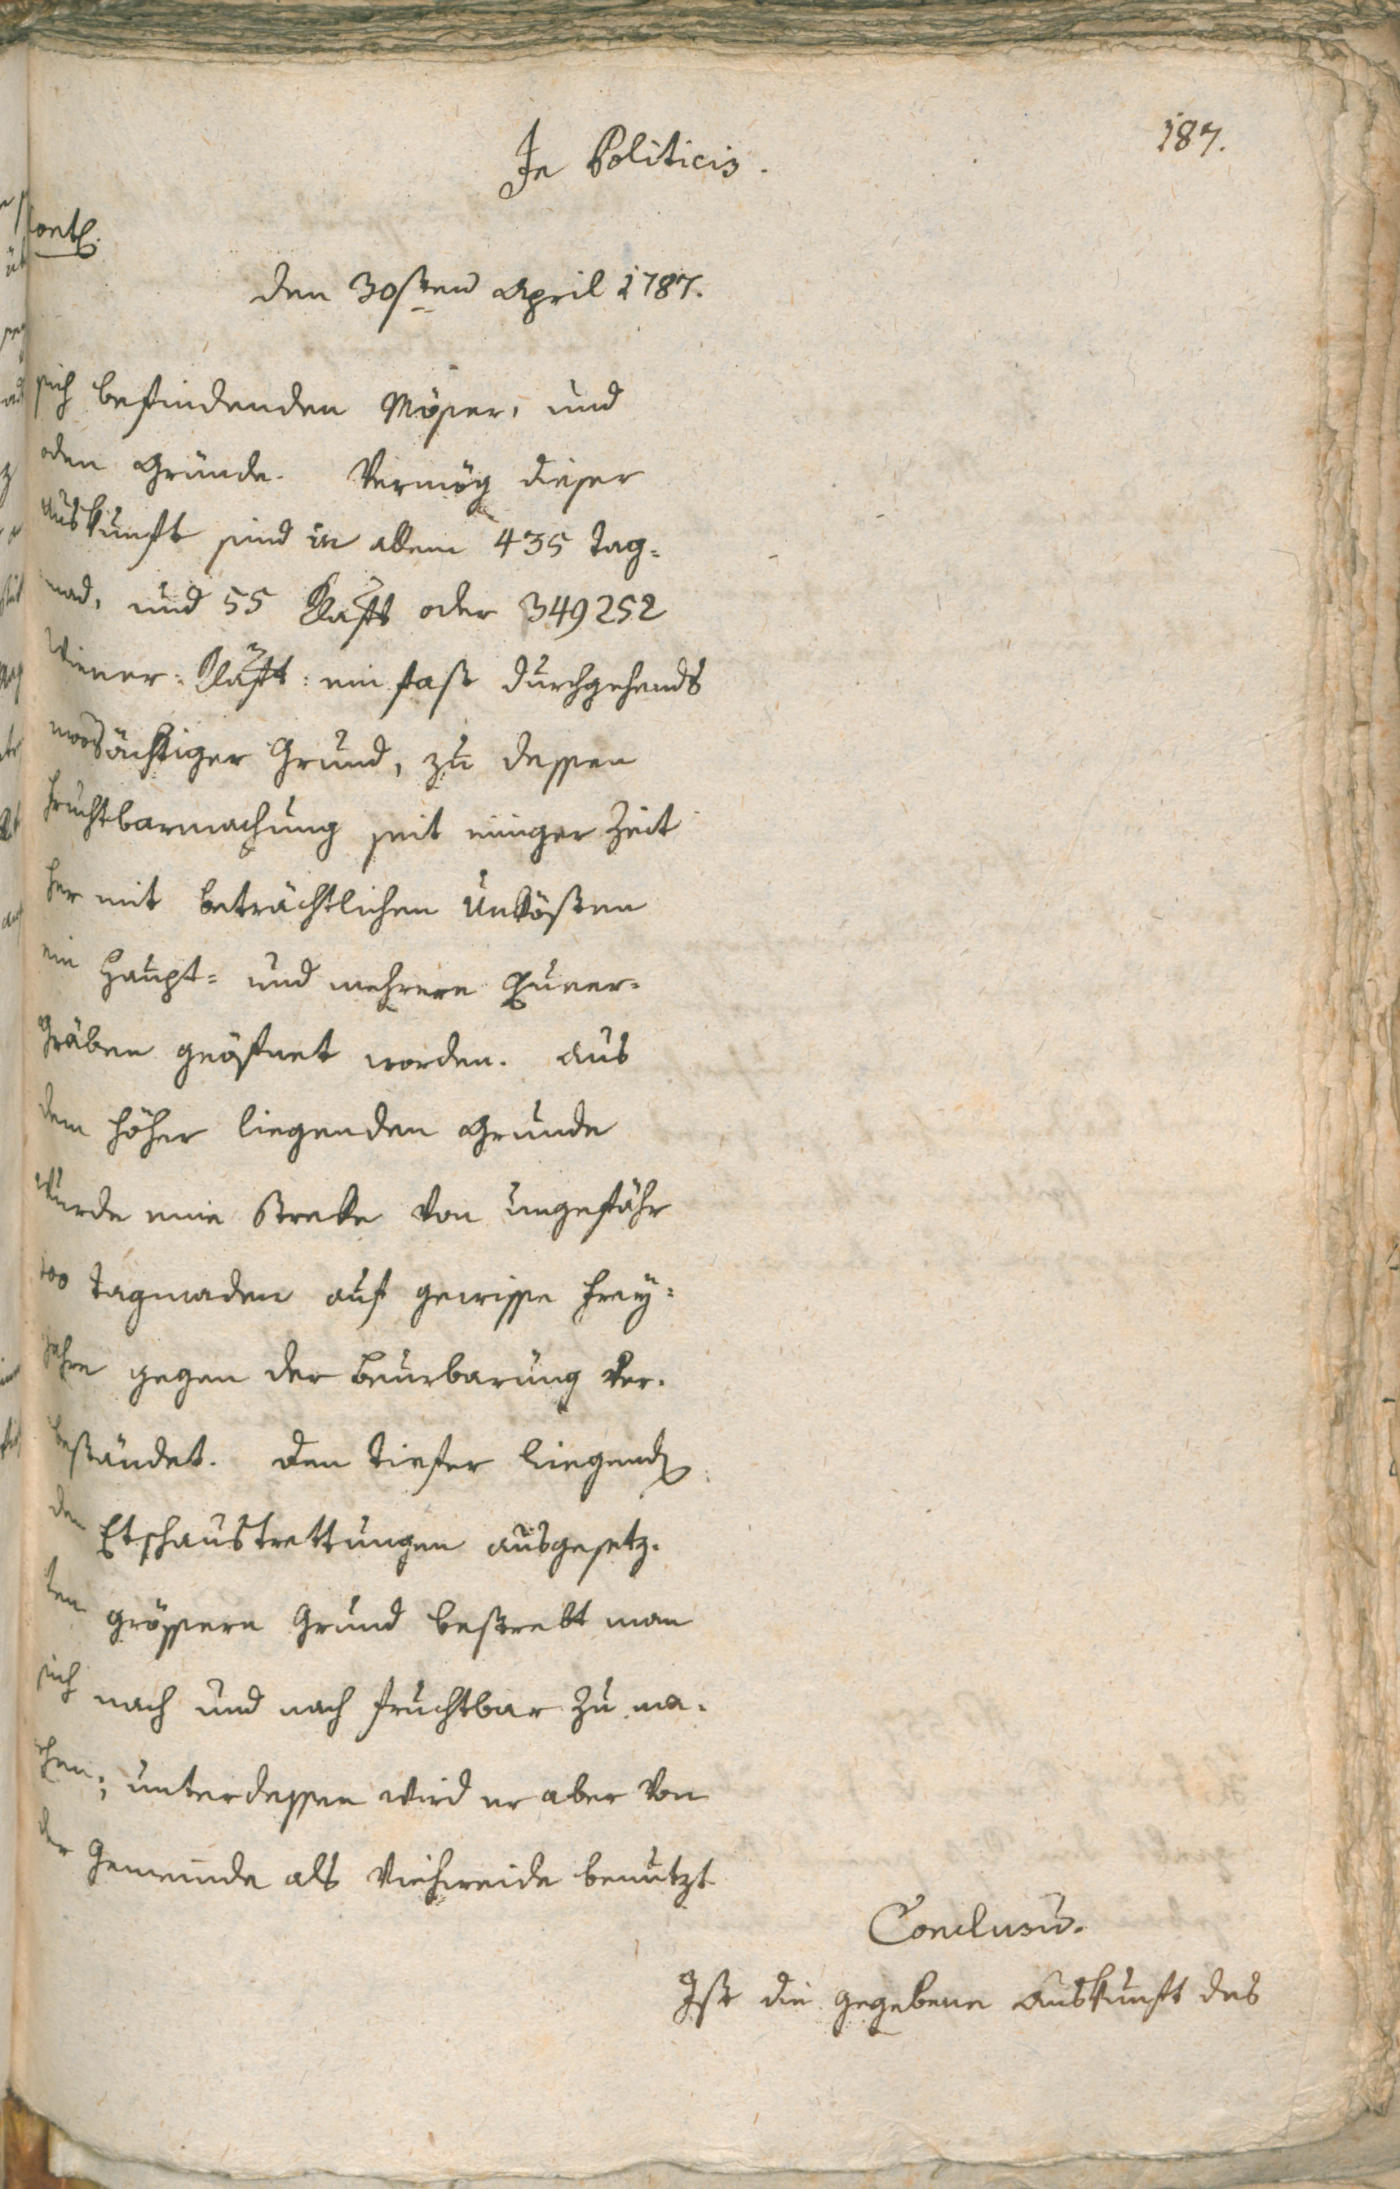 In Politicis.
187.
Cont.
den 30sten April 1787.
sich befindenden Möser, und
öden Gründe. Vermög dieser
Auskunft sind in allem 435 Tag=
mad, und 55 Klaft oder 349252
Wiener=Klaft: ein fast durchgehends
moosächtiger Grund, zu dessen
Fruchtbarmachung seit einiger Zeit
her mit beträchtlichen Unkösten
ein Haupt= und mehrere Quer=
Gräben geöfnet worden. Aus
dem höher liegenden Grunde
wurde eine Streke von ungefähr
100 Tagmaden auf gewisse Frey=
Jahre gegen der Beurbarung ver=
beständet. Den tiefer liegend
den Etschaustrettungen ausgesetz=
ten grössern Grund bestrebt man
sich nach und nach fruchtbar zu ma=
chen; unterdessen wird er aber von
der Gemeinde als Viehweide benutzt
Conclusū.
Ist die gegebene Auskunft des